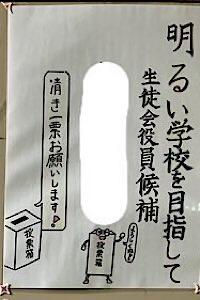 明るい学校を目指して
生徒会役員候補
清き一票お願いします!
投票箱
投票箱